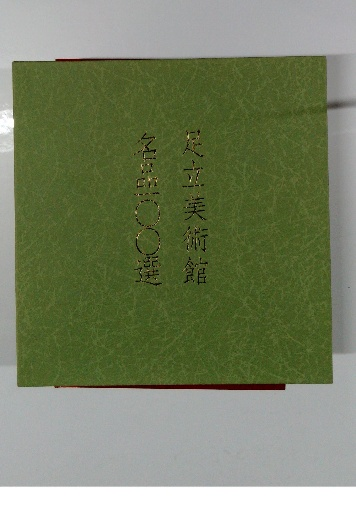 足立美術館
名品一〇〇選